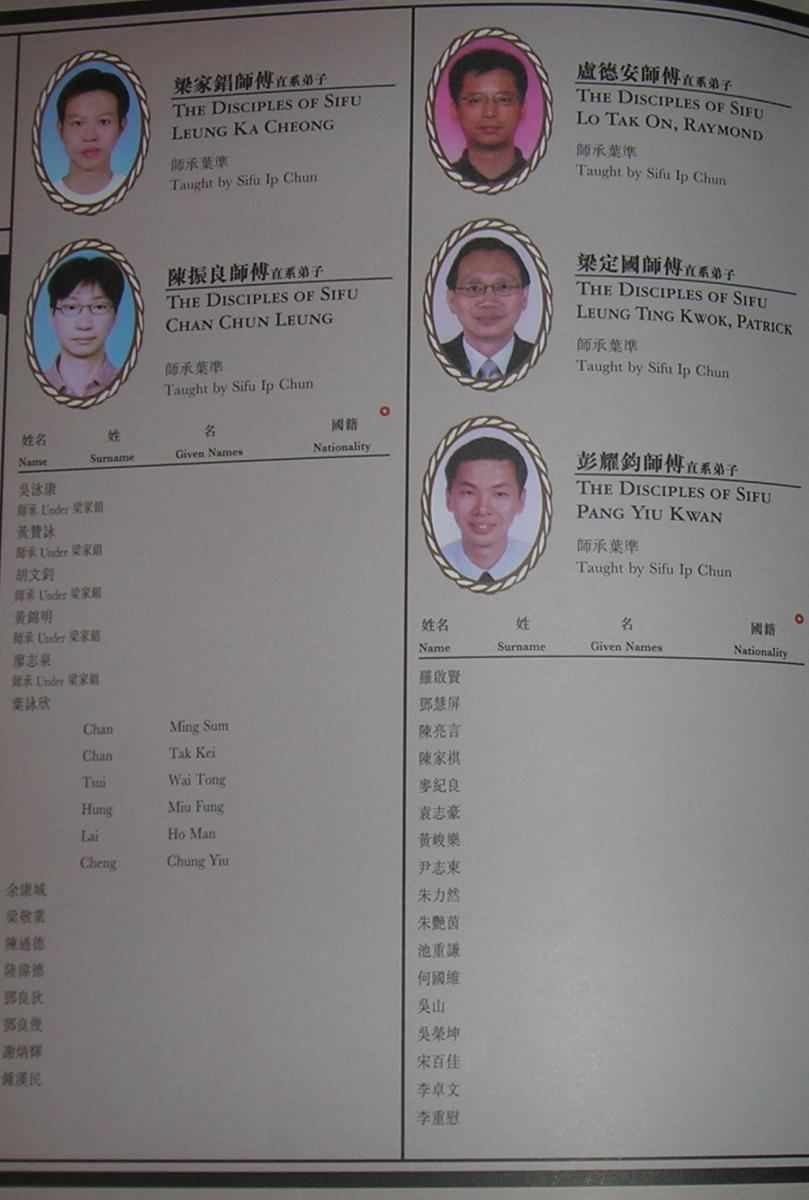 梁家錩師傅直系弟子
THE DISCIPLES OF SIFU
LEUNG KA CHEONG
師承葉準
Taught by Sifu Ip Chun
陳振良師傅直系弟子
THE DISCIPLES OF SIFU
CHAN CHUN LEUNG
師承葉準
Taught by Sifu Ip Chun
姓名 姓 名 國籍
Name Surname Given Names Nationality
吳泳康
師承 Under 梁家錩
黃贊詠
師承 Under 梁家錩
胡文釗
師承 Under 梁家錩
黃錦明
師承 Under 梁家錩
廖志泉
師承 Under 梁家錩
葉詠欣
Chan Ming Sum
Chan Tak Kei
Tsui Wai Tong
Hung Miu Fung
Lai Ho Man
Cheng Chung Yiu
余康城
梁敬業
陳通德
陸偉德
鄧良狄
鄧良俊
謝炳輝
鍾漢民
盧德安師傅直系弟子
THE DISCIPLES OF SIFU
LO TAK ON, RAYMOND
師承葉準
Taught by Sifu Ip Chun
梁定國師傅直系弟子
THE DISCIPLES OF SIFU
LEUNG TING KWOK, PATRICK
師承葉準
Taught by Sifu Ip Chun
彭耀鈞師傅直系弟子
THE DISCIPLES OF SIFU
PANG YIU KWAN
師承葉準
Taught by Sifu Ip Chun
姓名 姓 名 國籍
Name Surname Given Names Nationality
羅啟賢
鄧慧屏
陳亮言
陳家祺
麥紀良
袁志豪
黃峻樂
尹志東
朱力然
朱艷茵
池重謙
何國維
吳山
吳榮坤
宋百佳
李卓文
李重慰